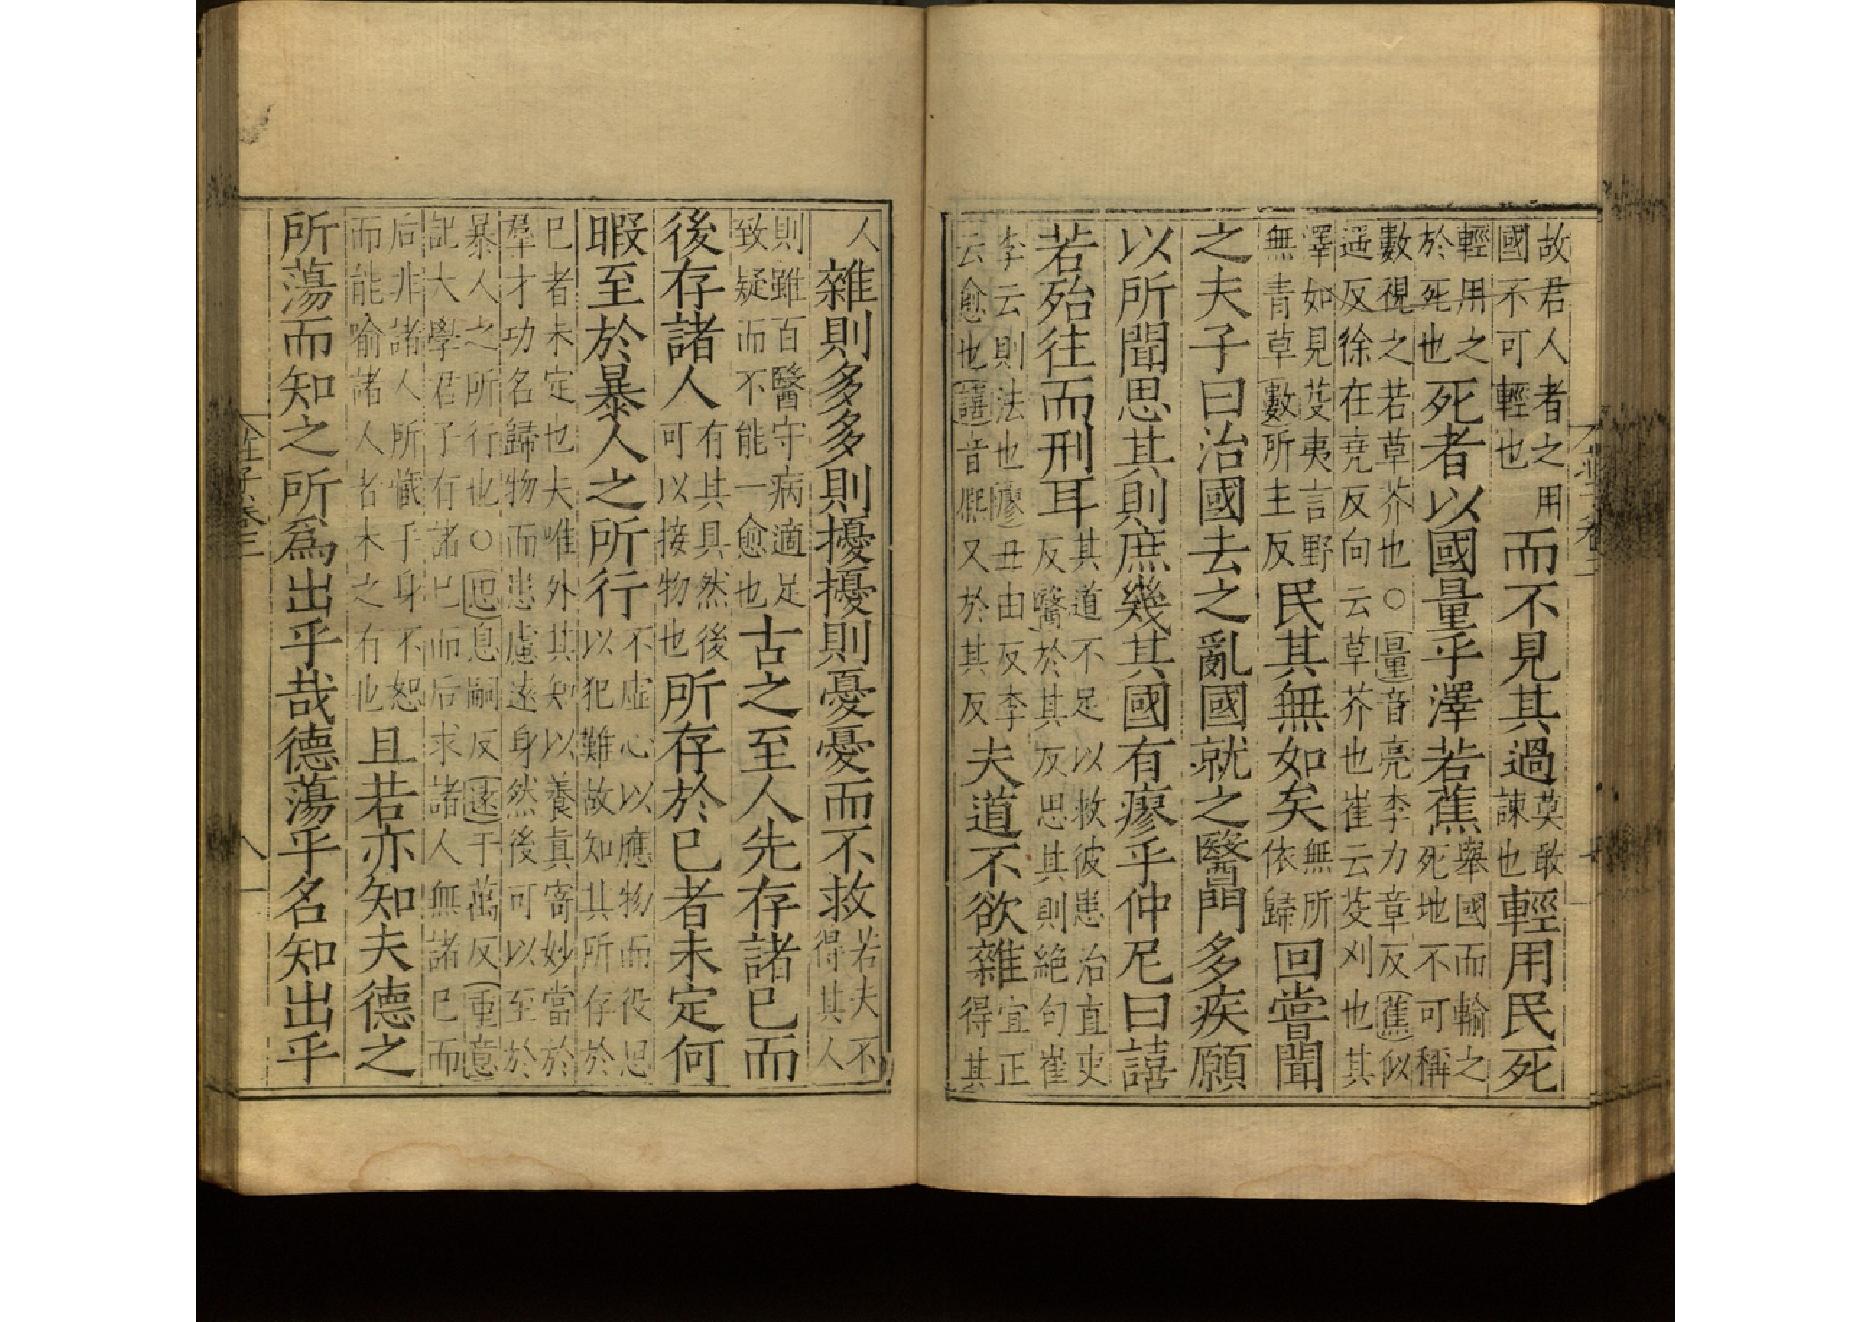 故君人者之用
國不可輕也
而不見其過
莫敢
諫也
輕用民死
輕用之
於死也
死者以國量乎澤若蕉
舉國而輸之
死地不可稱
數視之若草芥也○量音亮李力章反蕉似
遥反徐在堯反向云草芥也崔云芟刈也其
澤如見芟夷言野
無青草數所主反
民其無如矣
無所
依歸
回嘗聞
之夫子曰治國去之亂國就之醫門多疾願
以所聞思其則庶幾其國有瘳乎仲尼曰譆
若殆往而刑耳
其道不足以救彼患治直吏
反醫於其反思其則絕句崔
李云則法也瘳丑由反李
云愈也譆音熈又於其反
夫道不欲雜
宜正
得其
人
雜則多多則擾擾則憂憂而不救
若夫不
得其人
則雖百醫守病適足
致疑而不能一愈也
古之至人先存諸已而
後存諸人
有其具然後
可以接物也
所存於已者未定何
暇至於暴人之所行
不虛心以應物而役思
以犯難故知其所存於
已者未定也夫唯外其知以養真寄妙當於
羣才功名歸物而患慮遠身然後可以至於
暴人之所行也○思息嗣反遠于萬反重意
記大學君子有諸已而后求諸人無諸已而
后非諸人所懺乎身不恕
而能喻諸人者未之有也
且若亦知夫德之
所蕩而知之所爲出乎哉德蕩乎名知出乎
八